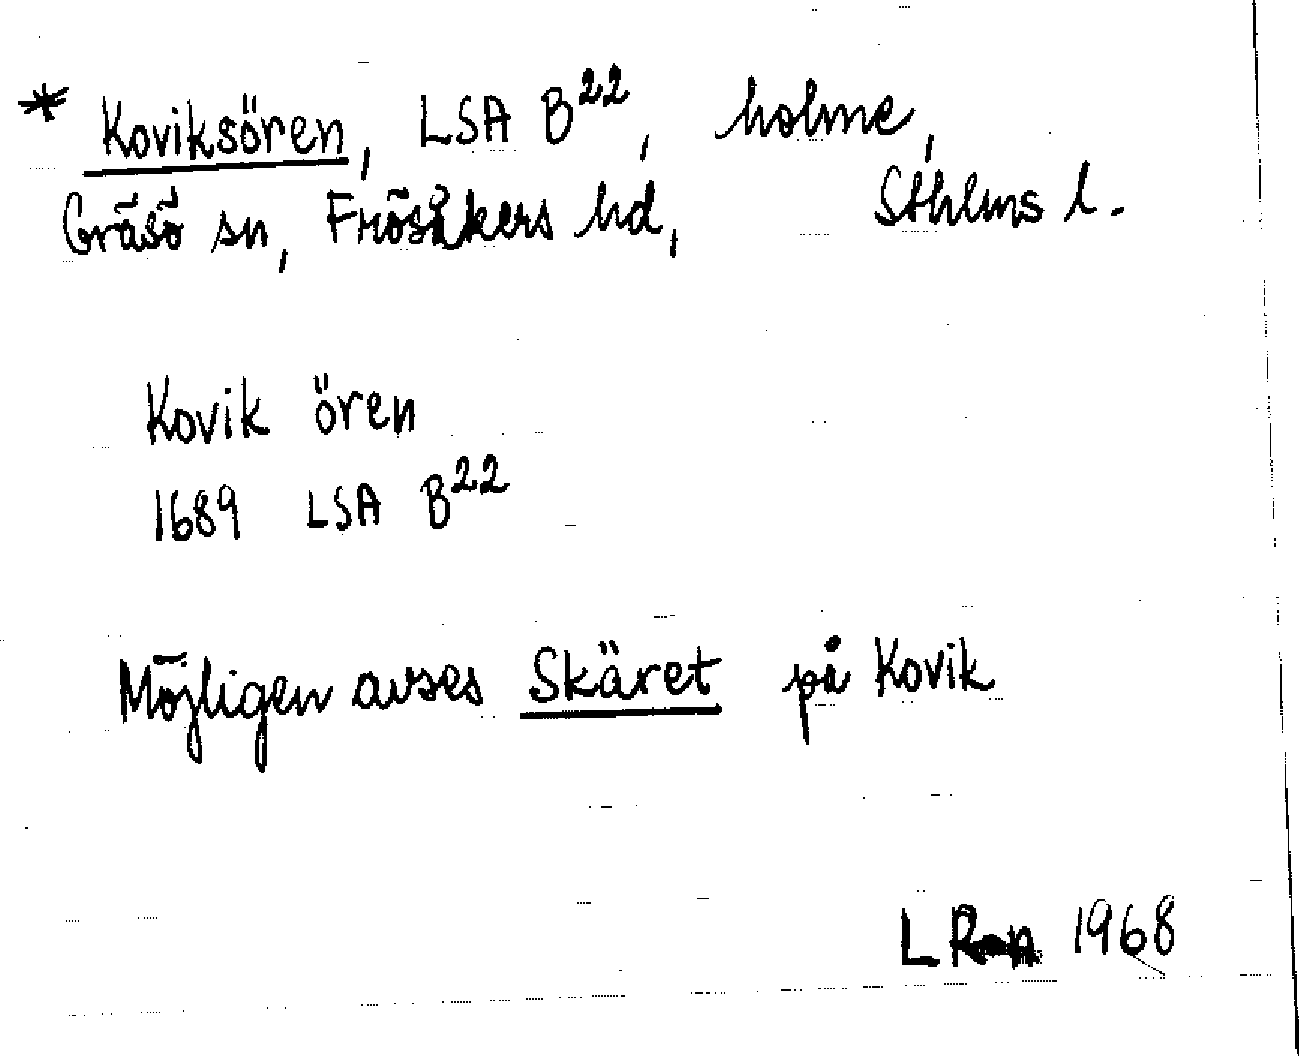 * Koviksören, LSA B²², holme,
Gräsö sn, Frösåkers hd, Sthlms l.
Kovik ören
1689 LSA B²²
Möjligen avses Skäret på Kovik
L 1968